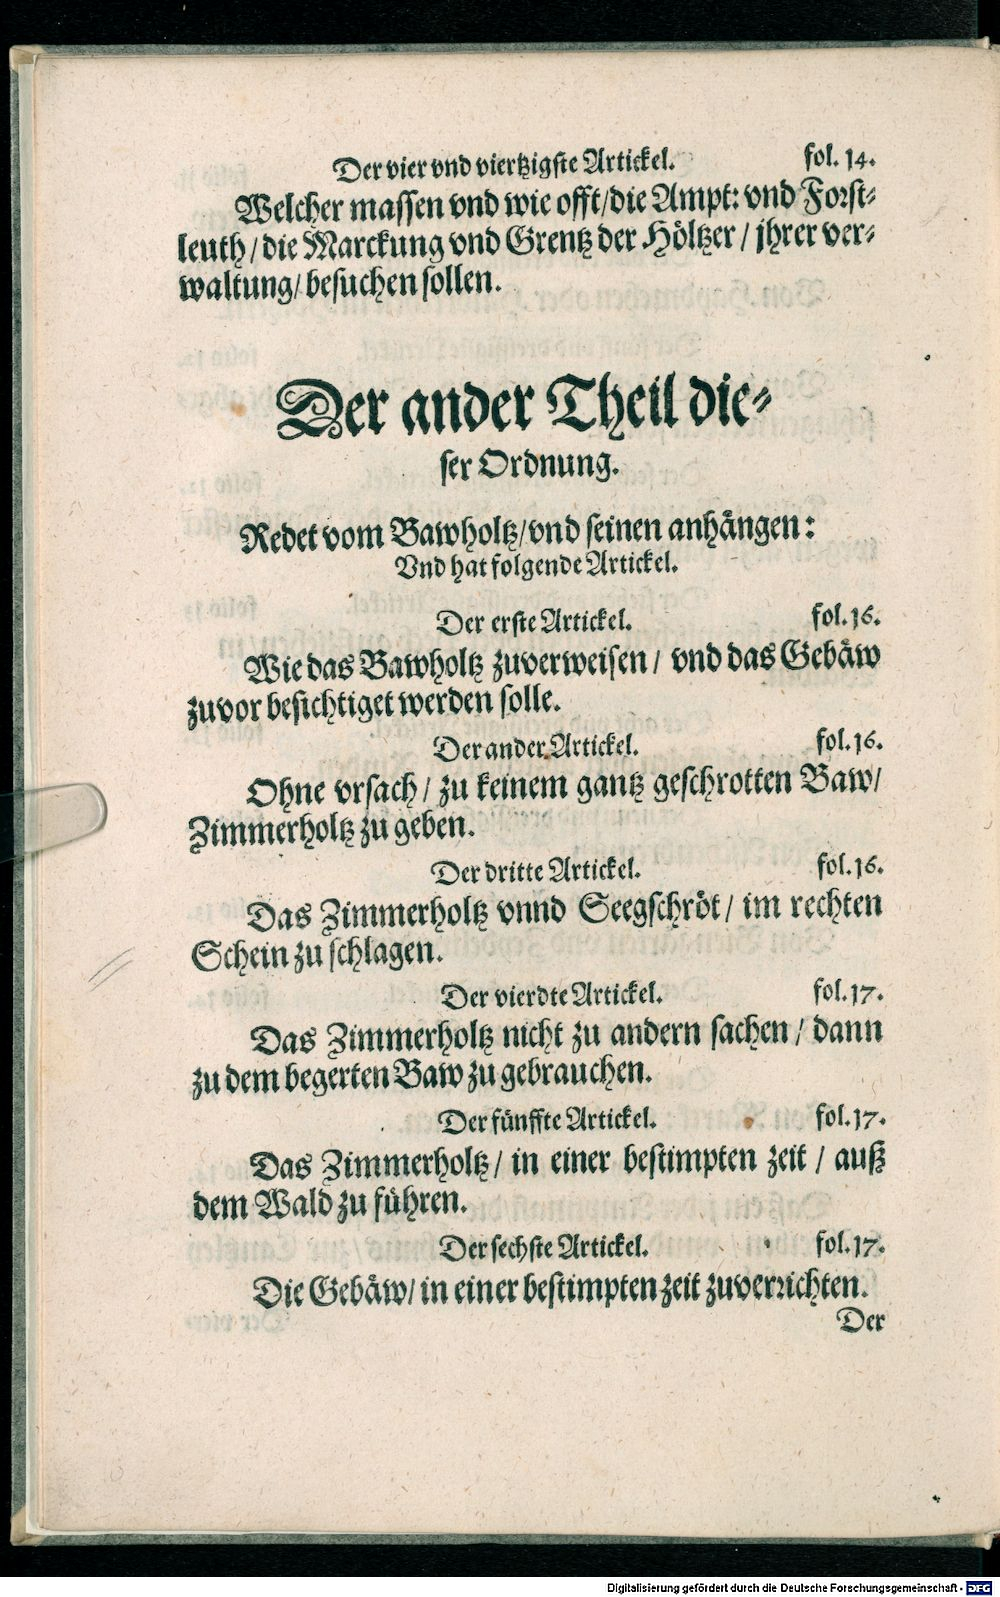 Der vier vnd viertzigste Artickel. fol. 14.
Welcher massen vnd wie offt/die Ampt: vnd Forst-
leuth/die Marckung vnd Grentz der Höltzer/jhrer ver-
waltung/besuchen sollen.
Der ander Theil die-
ser Ordnung.
Redet vom Bawholtz/vnd seinen anhängen:
Vnd hat folgende Artickel.
Der erste Artickel. fol. 16.
Wie das Bawholtz zuverweisen/ vnd das Gebäw
zuvor besichtiget werden solle.
Der ander Artickel. fol. 16.
Ohne vrsach/ zu keinem gantz geschrotten Baw/
Zimmerholtz zu geben.
Der dritte Artickel. fol. 16.
Das Zimmerholtz vnnd Seegschröt/ im rechten
Schein zu schlagen.
Der vierdte Artickel. fol. 17.
Das Zimmerholtz nicht zu andern sachen/ dann
zu dem begerten Baw zu gebrauchen.
Der fünffte Artickel. fol. 17.
Das Zimmerholtz/ in einer bestimpten zeit / auß
dem Wald zu führen.
Der sechste Artickel. fol. 17.
Die Gebäw/ in einer bestimpten zeit zuverrichten.
Der
Digitalisierung gefördert durch die Deutsche Forschungsgemeinschaft - DFG